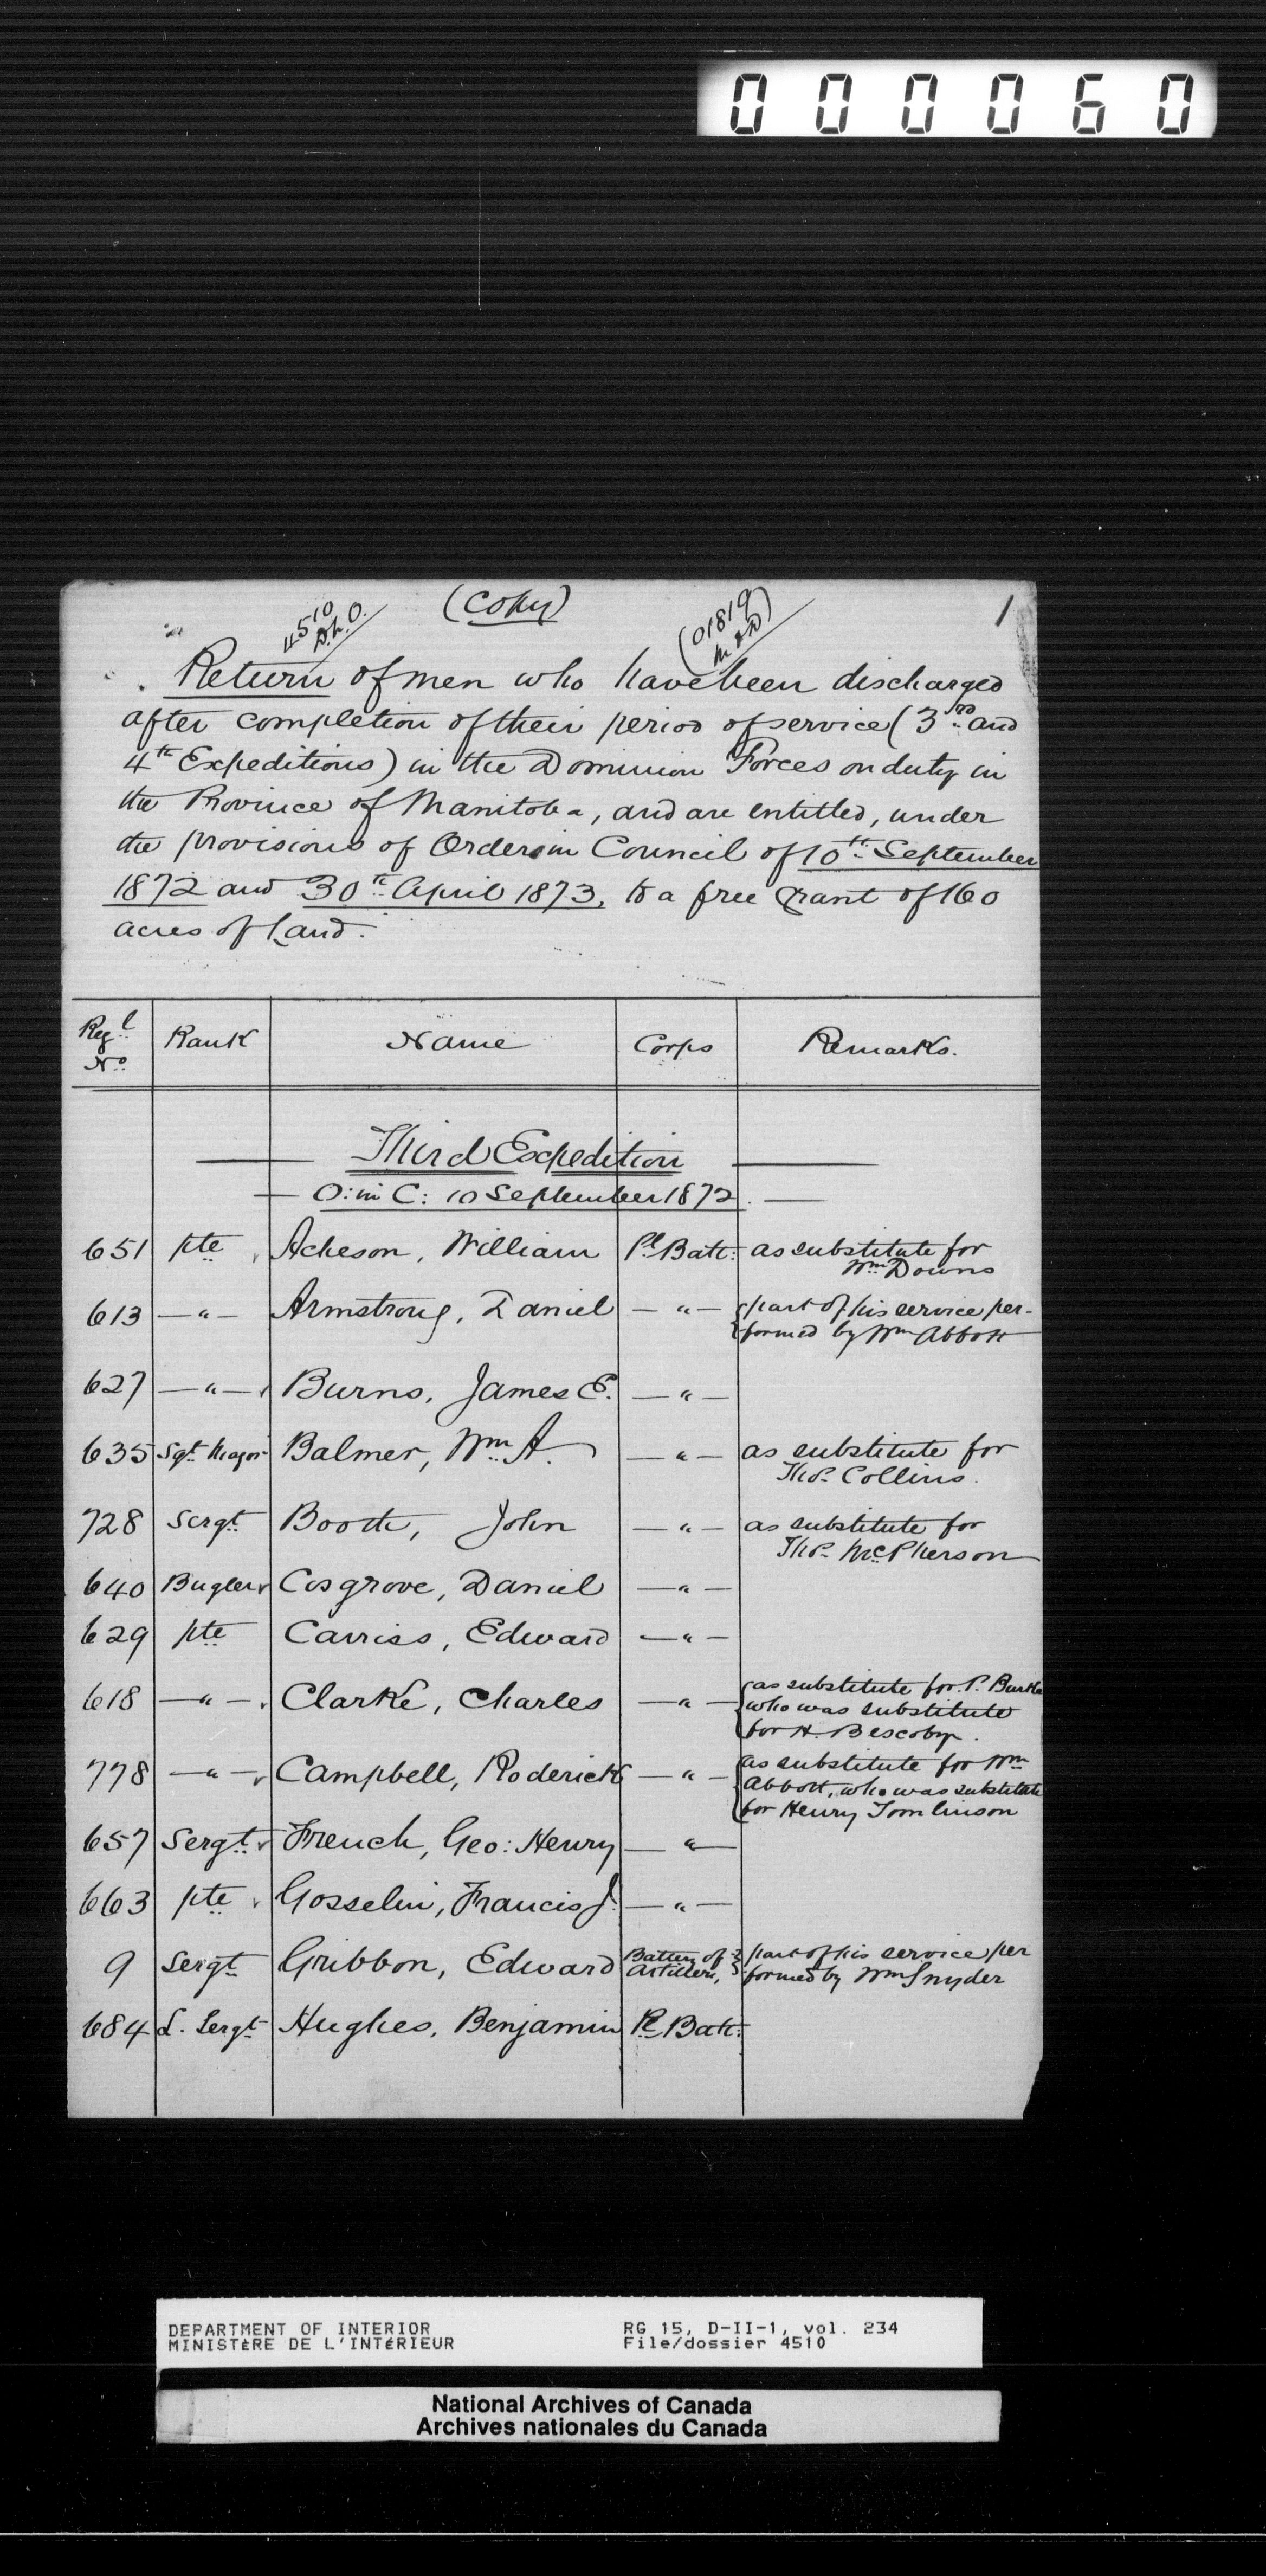 000060
(Copy)
1
4510
D.L.O.
(01819
M & D)
Return of men who have been discharged
after completion of their period of service (3rd and
4th Expeditions) in the Dominion Forces on duty in
the Province of Manitoba, and are entitled, under
the provisions of Orders in Council of 10th September
1872 and 30th April 1873, to a free Grant of 160
acres of Land.
Regl No Rank Name Corps Remarks.
Third Expedition
O: in C: 10 September 1872.
651 pte Acheson, William Pl Batt: as substitute for
Wm Downs
613 — " — Armstrong, Daniel — " — part of his service per-
formed by Wm Abbott
627 — " — Burns, James E. — " —
635 Sgt Major Balmer, Wm A. — " — as substitute for
Thos Collins.
728 Sergt Booth, John — " — as substitute for
Thos McPherson
640 Bugler Cosgrove, Daniel — " —
629 pte Carriss, Edward — " —
618 — " — Clarke, Charles — " — as substitute for P. Burke
who was substitute
for H. Bescoby.
778 — " — Campbell, Roderick — " — as substitute for Wm
Abbott, who was substitute
for Henry Tomlinson
657 Sergt French, Geo: Henry — " —
663 pte Gosselin, Francis J. — " —
9 Sergt Gribbon, Edward Battery of Artillery, part of his service per
formed by Wm Snyder
684 L. Sergt Hughes, Benjamin Pl Batt:
DEPARTMENT OF INTERIOR RG 15, D-II-1, vol. 234
MINISTÈRE DE L'INTÉRIEUR File/dossier 4510
National Archives of Canada
Archives nationales du Canada